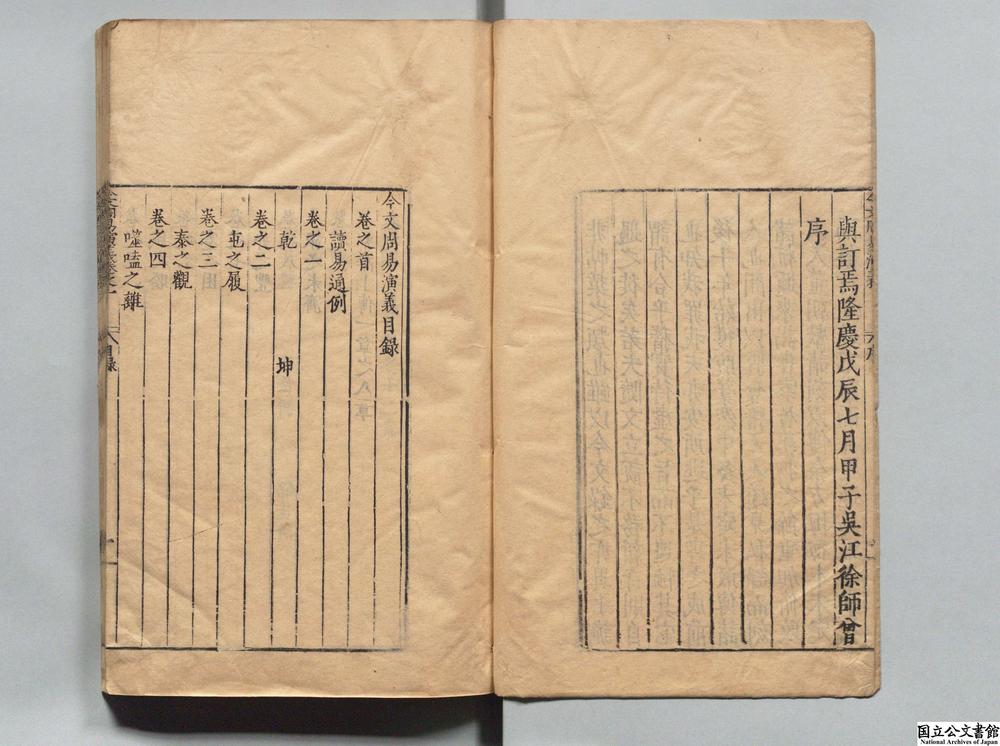 與訂焉隆慶戊辰七月甲子吳江徐師曾
序
今文周易演義目錄
卷之首
讀易通例
卷之一
乾 坤
卷之二
屯之履
卷之三
泰之觀
卷之四
噬嗑之離
目錄
国立公文書館
National Archives of Japan